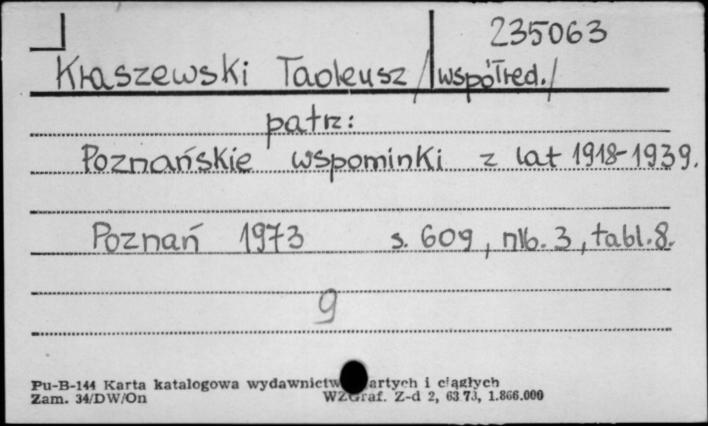 235063
Kraszewski Tadeusz /współred./
patrz:
Poznańskie wspominki z lat 1918-1939.
Poznań 1973 s. 609, nlb. 3, tabl. 8.
g
Pu-B-144 Karta katalogowa wydawnictw zwartych i ciągłych
Zam. 34/DW/On WZGraf. Z-d 2, 63 73, 1.866.000